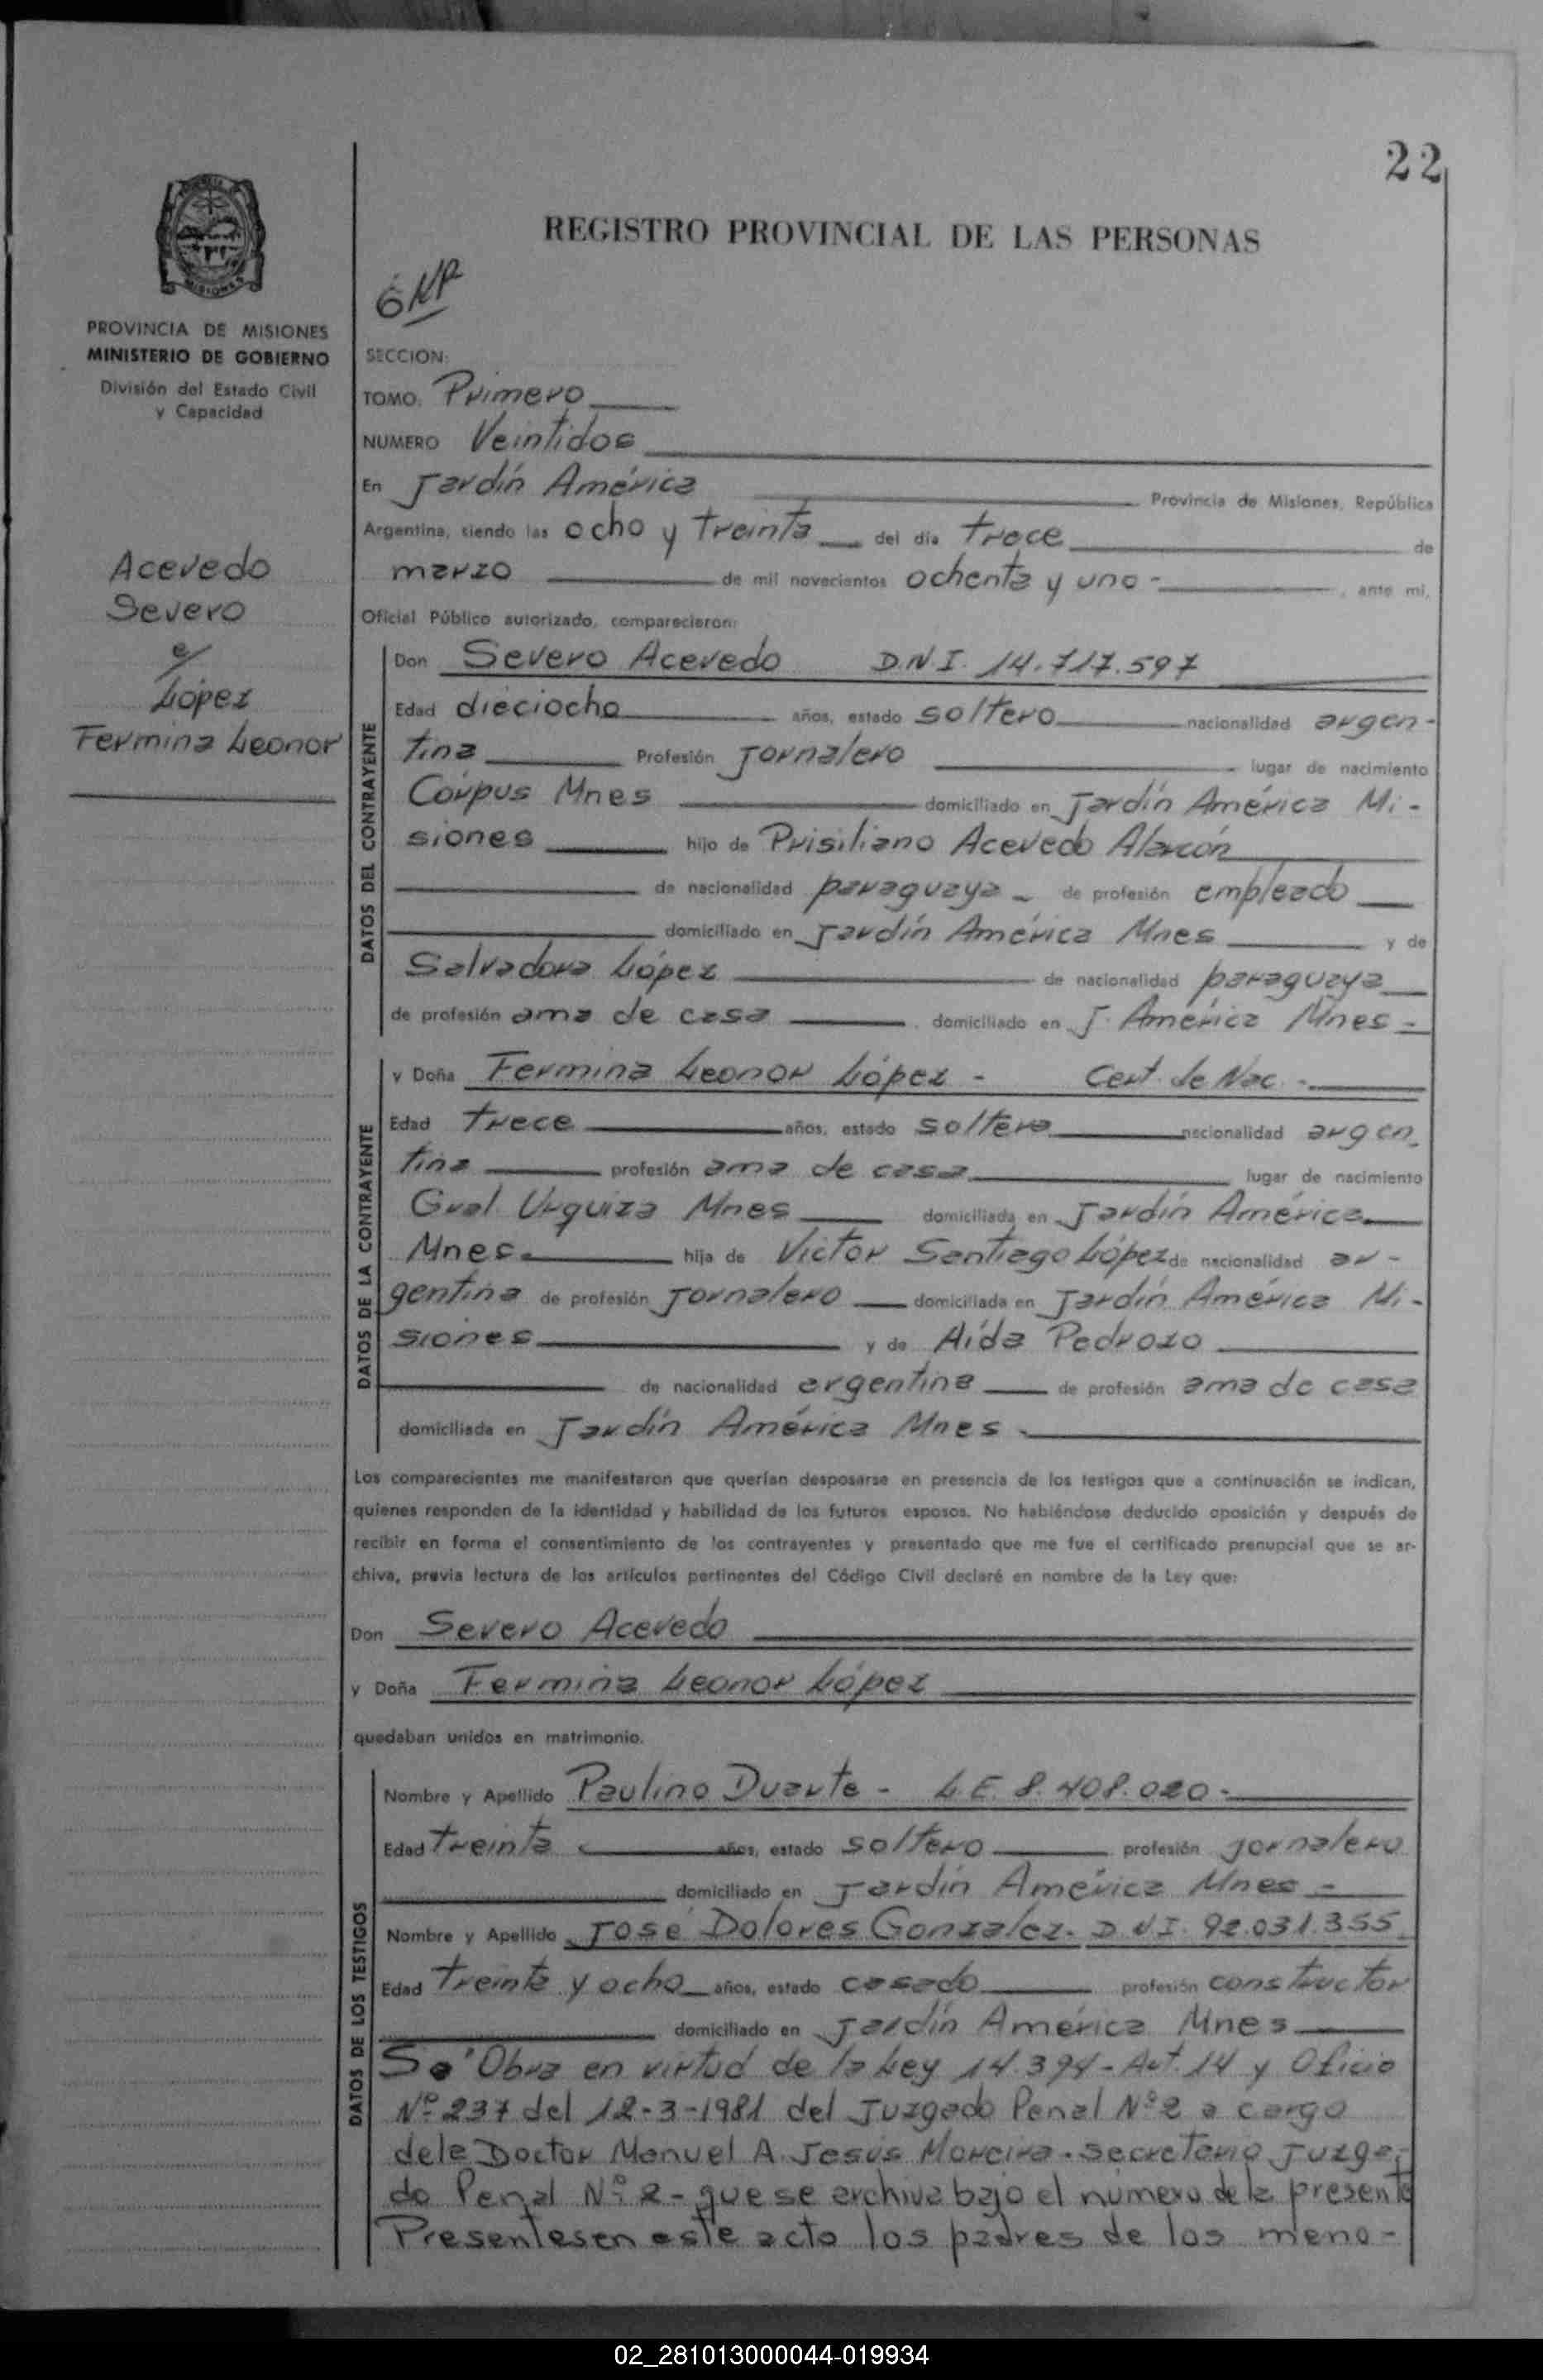 22
REGISTRO PROVINCIAL DE LAS PERSONAS
MISIONES
PROVINCIA DE MISIONES
MINISTERIO DE GOBIERNO
División del Estado Civil
y Capacidad
Acevedo
Severo
c/
López
Fermina Leonor
SECCION:
TOMO: Primero
NUMERO Veintidos
En Jardín América Provincia de Misiones, República
Argentina, siendo las ocho y treinta del día trece de
marzo de mil novecientos ochenta y uno - , ante mi,
Oficial Público autorizado, comparecieron:
DATOS DEL CONTRAYENTE
Don Severo Acevedo D.N.I. 14.717.597
Edad dieciocho años, estado soltero nacionalidad argen-
tina Profesión Jornalero lugar de nacimiento
Córpus Mnes domiciliado en Jardín América Mi-
siones hijo de Prisiliano Acevedo Alarcón
de nacionalidad paraguaya - de profesión empleado
domiciliado en Jardín América Mnes y de
Salvadora López de nacionalidad paraguaya
de profesión ama de casa domiciliado en J. América Mnes -
DATOS DE LA CONTRAYENTE
y Doña Fermina Leonor López - Cert. de Nac. -
Edad trece años, estado soltera nacionalidad argen-
tina profesión ama de casa lugar de nacimiento
Gral Urquiza Mnes domiciliada en Jardín América
Mnes. hija de Victor Santiago López de nacionalidad ar-
gentina de profesión Jornalero domiciliada en Jardín América Mi-
siones y de Aída Pedrozo
de nacionalidad argentina de profesión ama de casa
domiciliada en Jardín América Mnes -
Los comparecientes me manifestaron que querían desposarse en presencia de los testigos que a continuación se indican,
quienes responden de la identidad y habilidad de los futuros esposos. No habiéndose deducido oposición y después de
recibir en forma el consentimiento de los contrayentes y presentado que me fue el certificado prenupcial que se ar-
chiva, previa lectura de los artículos pertinentes del Código Civil declaré en nombre de la Ley que:
Don Severo Acevedo
y Doña Fermina Leonor López
quedaban unidos en matrimonio.
DATOS DE LOS TESTIGOS
Nombre y Apellido Paulino Duarte - L.E. 8.408.020 -
Edad treinta años, estado soltero profesión jornalero
domiciliado en Jardín América Mnes -
Nombre y Apellido José Dolores Gonzalez. D.N.I. 92.031.355
Edad treinta y ocho años, estado casado profesión constructor
domiciliado en Jardín América Mnes
Se Obra en virtud de la Ley 14.394 - Art. 14 y Oficio
Nº 237 del 12-3-1981 del Juzgado Penal Nº 2 a cargo
dele Doctor Manuel A. Jesús Moreira - Secretario Juzga-
do Penal Nº 2 - que se archiva bajo el número de la presente
Presentesen este acto los padres de los meno-
02_281013000044-019934